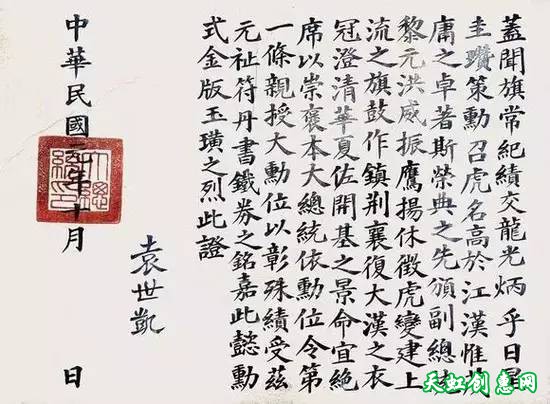 蓋聞旗常紀績交龍光炳乎日星
圭瓚策勳召虎名高於江漢惟茂
庸之卓著斯榮典之先頒副總統
黎元洪威振鷹揚休徵虎變建上
流之旗鼓作鎮荊襄復大漢之衣
冠澄清華夏佐開基之景命宜絕
席以崇褒本大總統依勳位令第
一條親授大勳位以彰殊績受茲
元祉符丹書鐵券之銘嘉此懿勳
式金版玉璜之烈此證
袁世凱
中華民國元年十月 日
天虹创意网